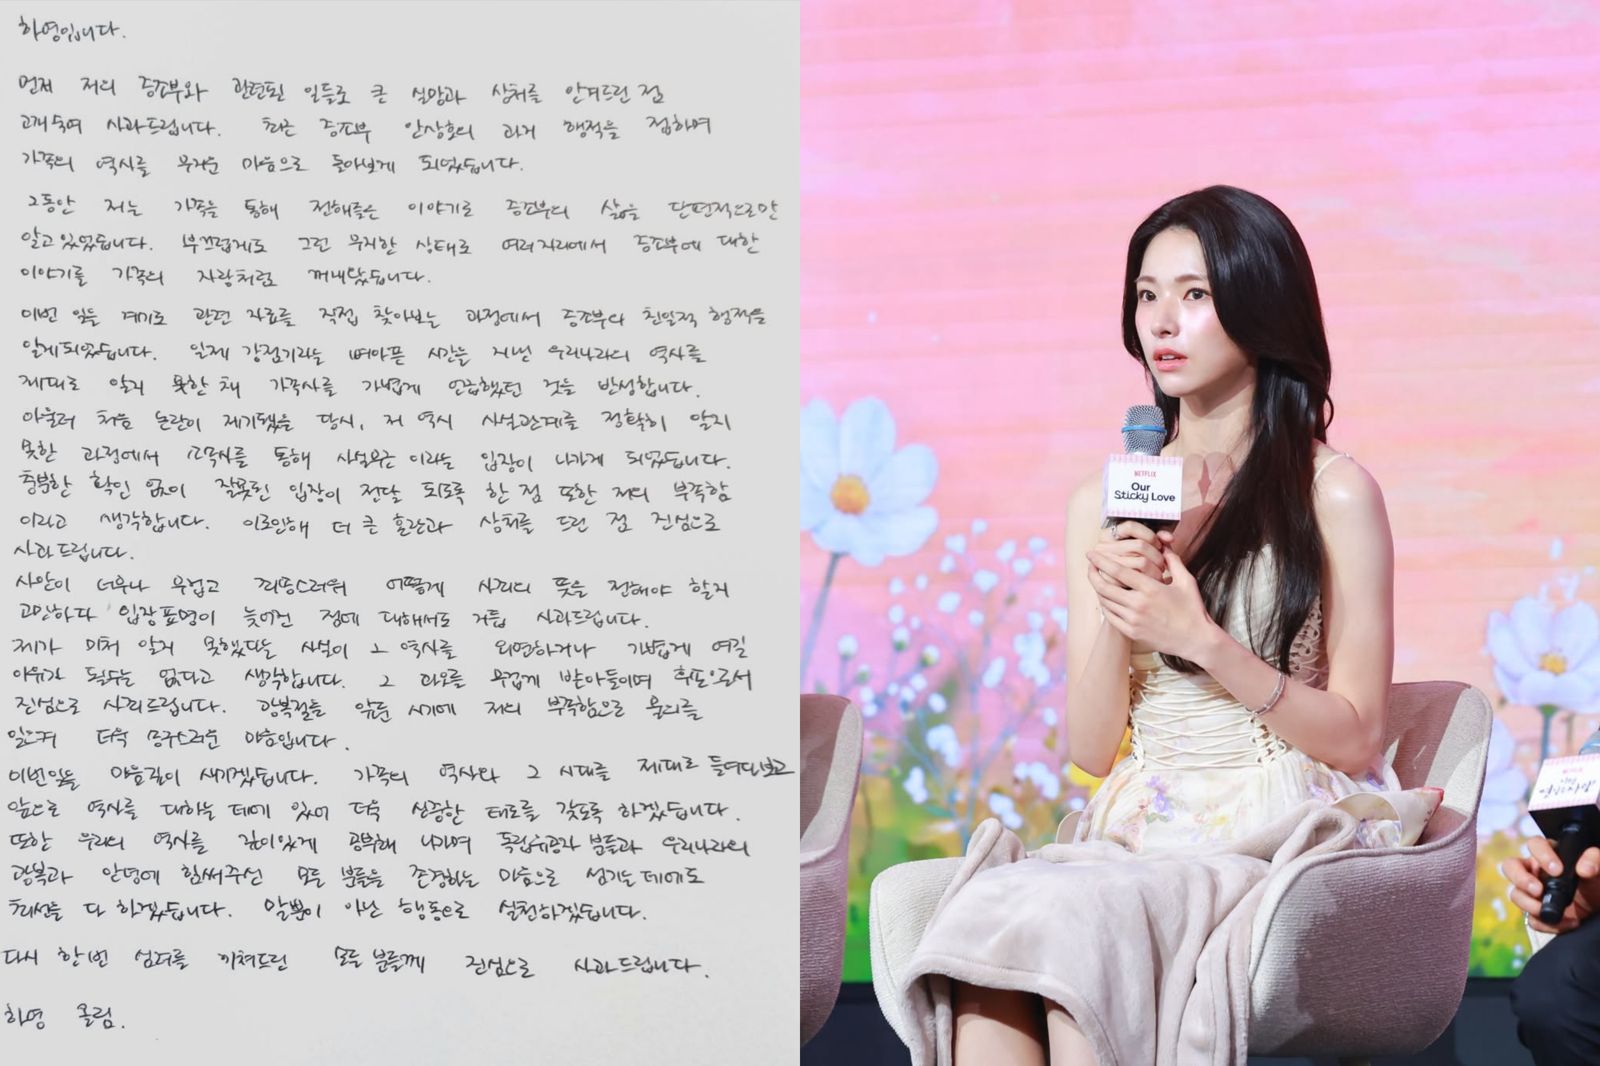 하영입니다.
먼저 저의 증조부와 관련된 일들로 큰 실망과 상처를 안겨드린 점
고개숙여 사과드립니다. 최근 증조부 안상호의 과거 행적을 접하며
가족의 역사를 무거운 마음으로 돌아보게 되었습니다.
그동안 저는 가족을 통해 전해들은 이야기로 증조부의 삶을 단편적으로만
알고있었습니다. 부끄럽게도 그런 무지한 상태로 여러자리에서 증조부에 대한
이야기를 가족의 자랑처럼 꺼내왔습니다.
이번 일을 계기로 관련 자료를 직접 찾아보는 과정에서 증조부의 친일적 행적을
알게되었습니다. 일제 강점기라는 뼈아픈 시간을 지닌 우리나라의 역사를
제대로 알지 못한 채 가족사를 가볍게 언급했던 것을 반성합니다.
아울러 처음 논란이 제기됐을 당시, 저 역시 사실관계를 정확히 알지
못한 과정에서 소속사를 통해 사실무근이라는 입장이 나가게 되었습니다.
충분한 확인 없이 잘못된 입장이 전달 되도록 한 점 또한 저의 부족함
이라고 생각합니다. 이로인해 더 큰 혼란과 상처를 드린 점 진심으로
사과드립니다.
사안이 너무나 무겁고 죄송스러워 어떻게 사죄의 뜻을 전해야 할지
고민하다 입장표명이 늦어진 점에 대해서도 거듭 사과드립니다.
제가 미처 알지 못했다는 사실이 그 역사를 외면하거나 가볍게 여길
이유가 될수는 없다고 생각합니다. 그 과오를 무겁게 받아들이며 후손으로서
진심으로 사죄드립니다. 광복절을 앞둔 시기에 저의 부족함으로 물의를
일으켜 더욱 송구스러운 마음입니다.
이번일을 마음깊이 새기겠습니다. 가족의 역사와 그 시대를 제대로 들여다보고
앞으로 역사를 대하는 데에 있어 더욱 신중한 태도를 갖도록 하겠습니다.
또한 우리의 역사를 깊이있게 공부해 나가며 독립유공자 분들과 우리나라의
광복과 안녕에 힘써주신 모든 분들을 존경하는 마음으로 섬기는데에도
최선을 다 하겠습니다. 말뿐이 아닌 행동으로 실천하겠습니다.
다시 한번 심려를 끼쳐드린 모든 분들께 진심으로 사과드립니다.
하영 올림.
NETFLIX
Our
Sticky Love
NETFLIX